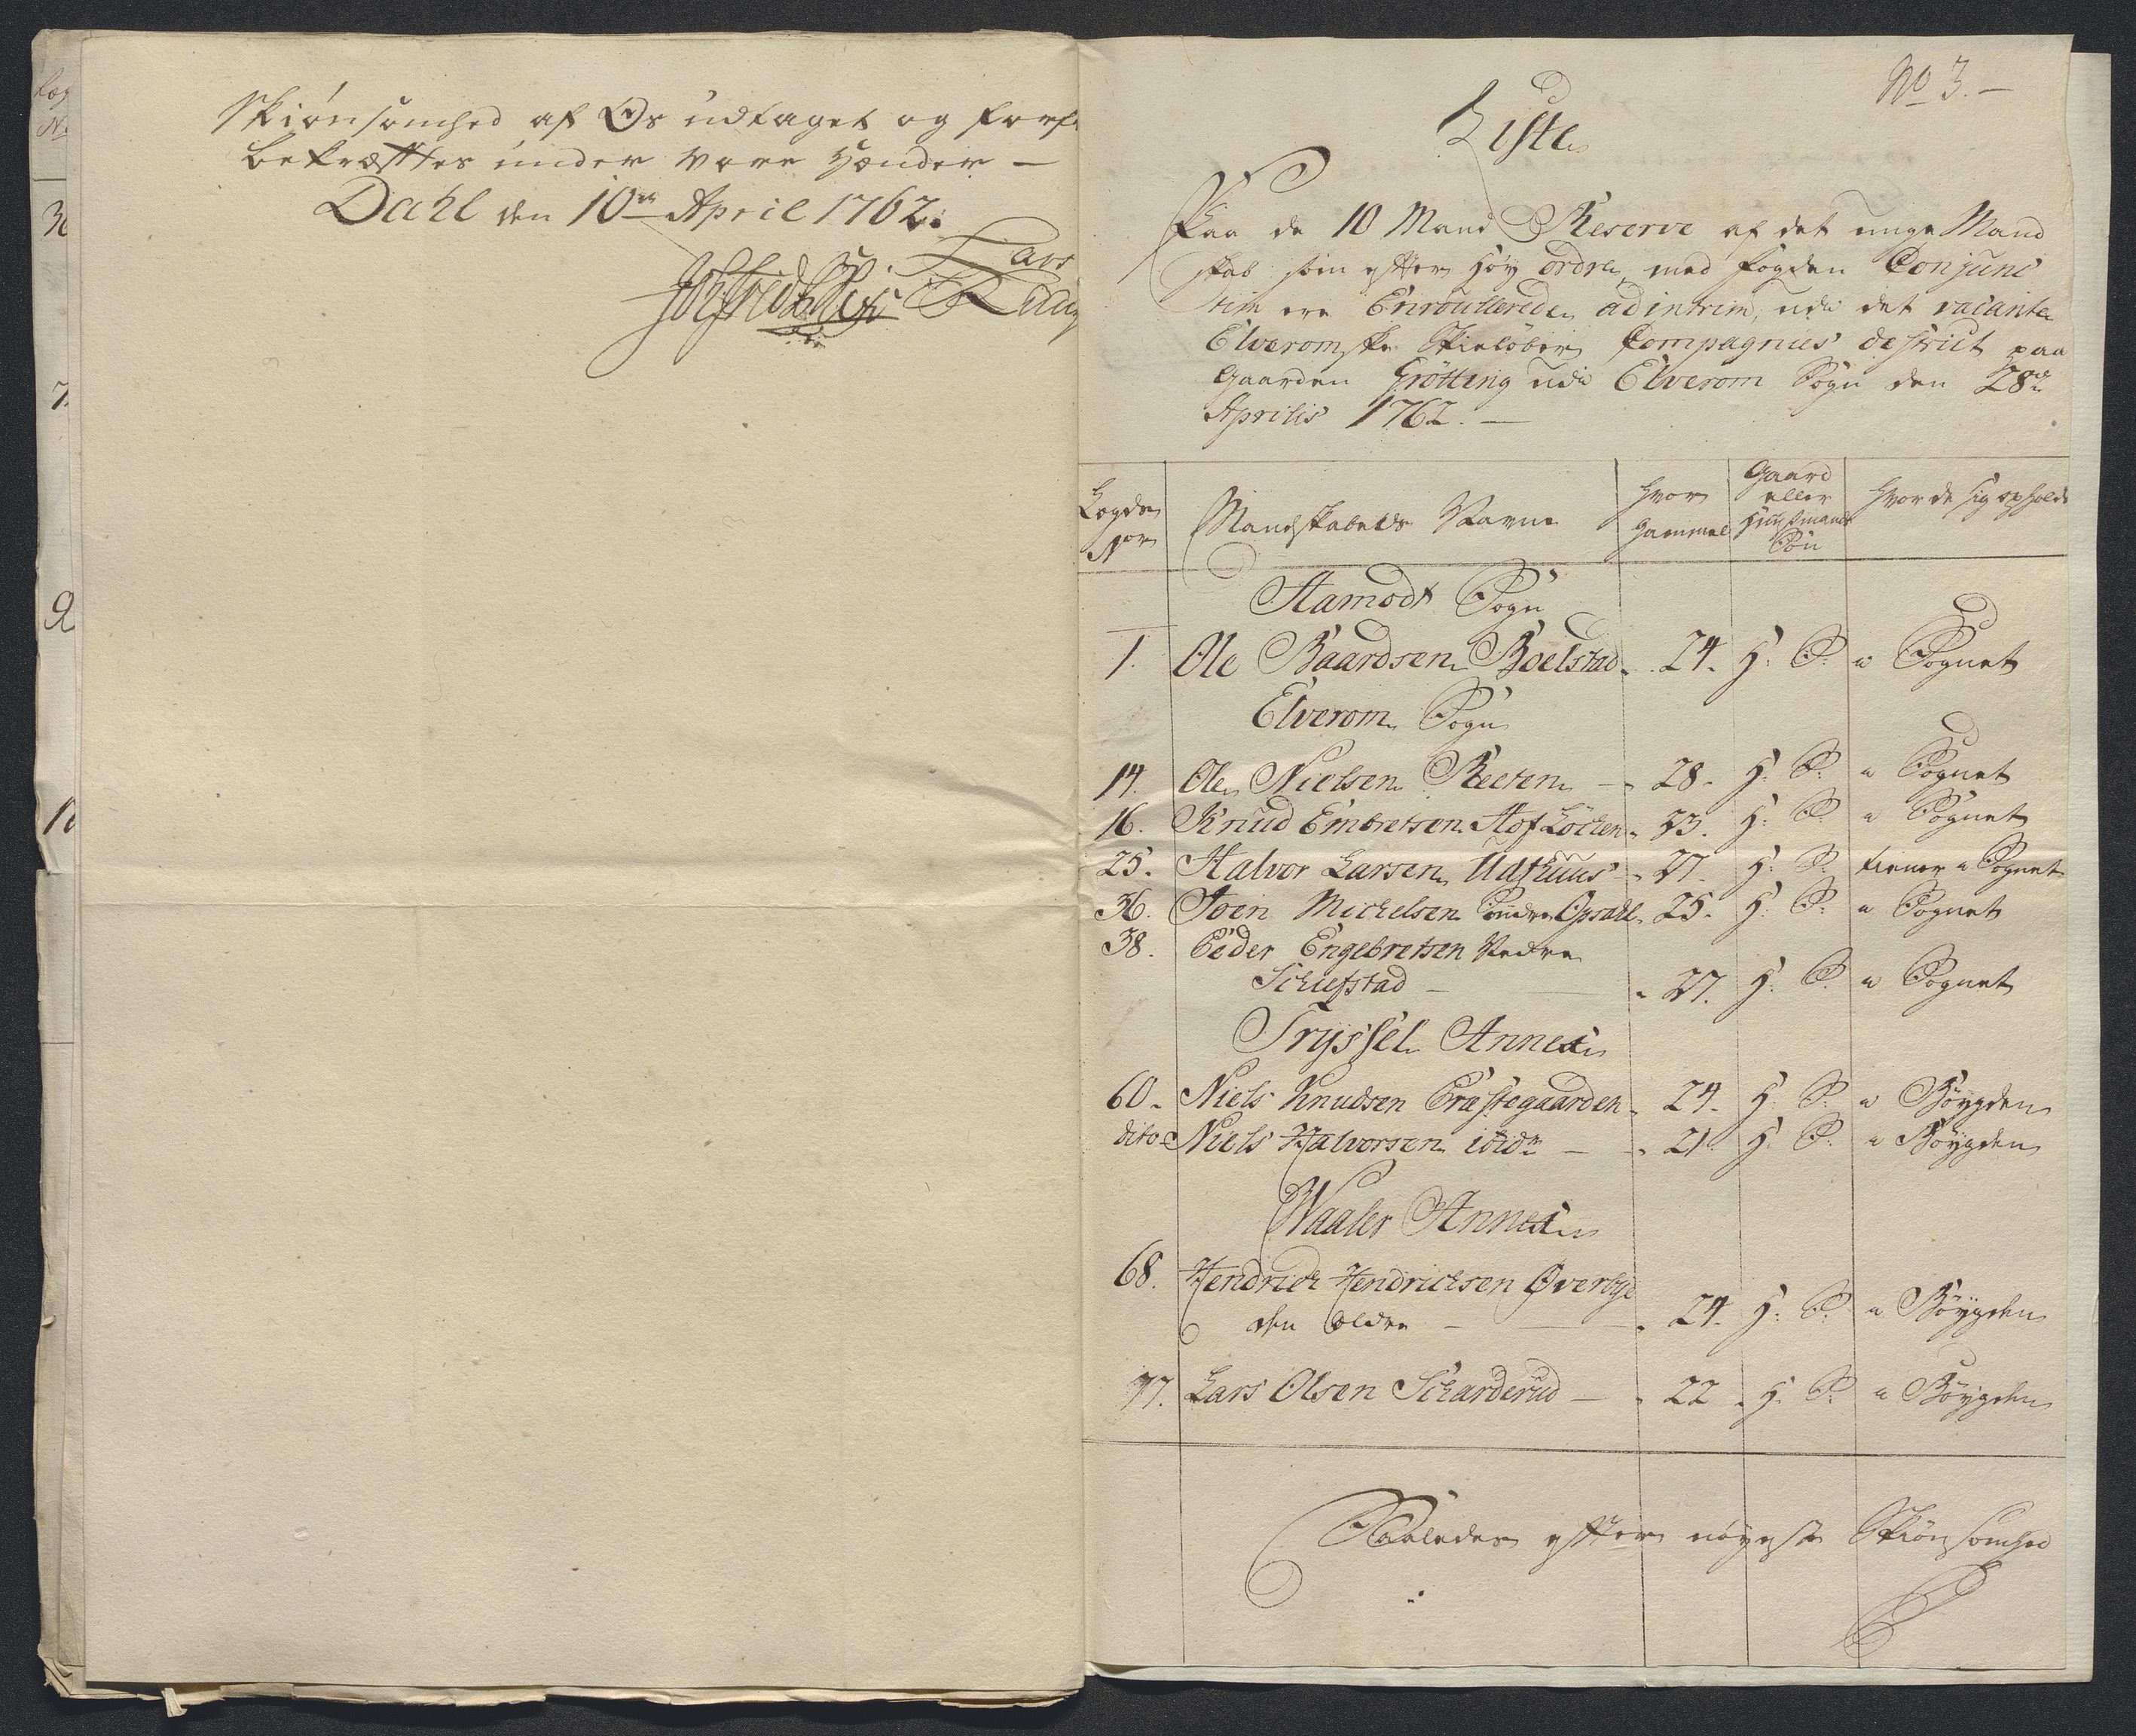 Skiønsomhed af Os udtaget og
bekræfttes under vore Hænder —
Dahl den 10de April 1762.
Lars
No 3. —
Liste
Paa de 10 Mand Reserve af det unge Mand
skab som efter høy ordre, med fogden Conjunc
tim ere Enroullerede ad intrim, udi det vacante
Elveromske Skieløber Compagnies district paa
Gaarden Grøtting udi Elverom Sogn den 28de
Aprilis 1762. —
Legde Nor
Mandskabets Navne
Hvor Gammel
Gaard eller Huusmands Søn
Hvor de sig opholde
Aamodt Sogn
1. Ole Baardsen Boelstad " 24. H: S: i Sognet
Elverom Sogn
14. Ole Nielsen Reeten — " 28. H: S: i Sognet
16. Knud Embretsen Hof Løcken " 33. H: S: i Sognet
25. Halvor Larsen Udthuus " 27. H: S: tiener i Sognet
36. Joen Michelsen Søndre Opsahl " 25. H: S: i Sognet
38. Peder Engebretsen Nedre
Schiefstad — " 27. H: S: i Sognet
Tryssel Annex
60. Niels Knudsen Præstegaarden " 24. H: S: i Bøygden
dito Niels Halvorsen ibidm — " 21. H: S: i Bøygden
Waaler Annex
68. Hendrich Hendrichsen Øverbye
den ældre — " 24. H: S: i Bøygden
77. Lars Olsen Scharderud — " 22. H: S: i Bøygden
Saaledes efter nøyeste Skiønsomhed